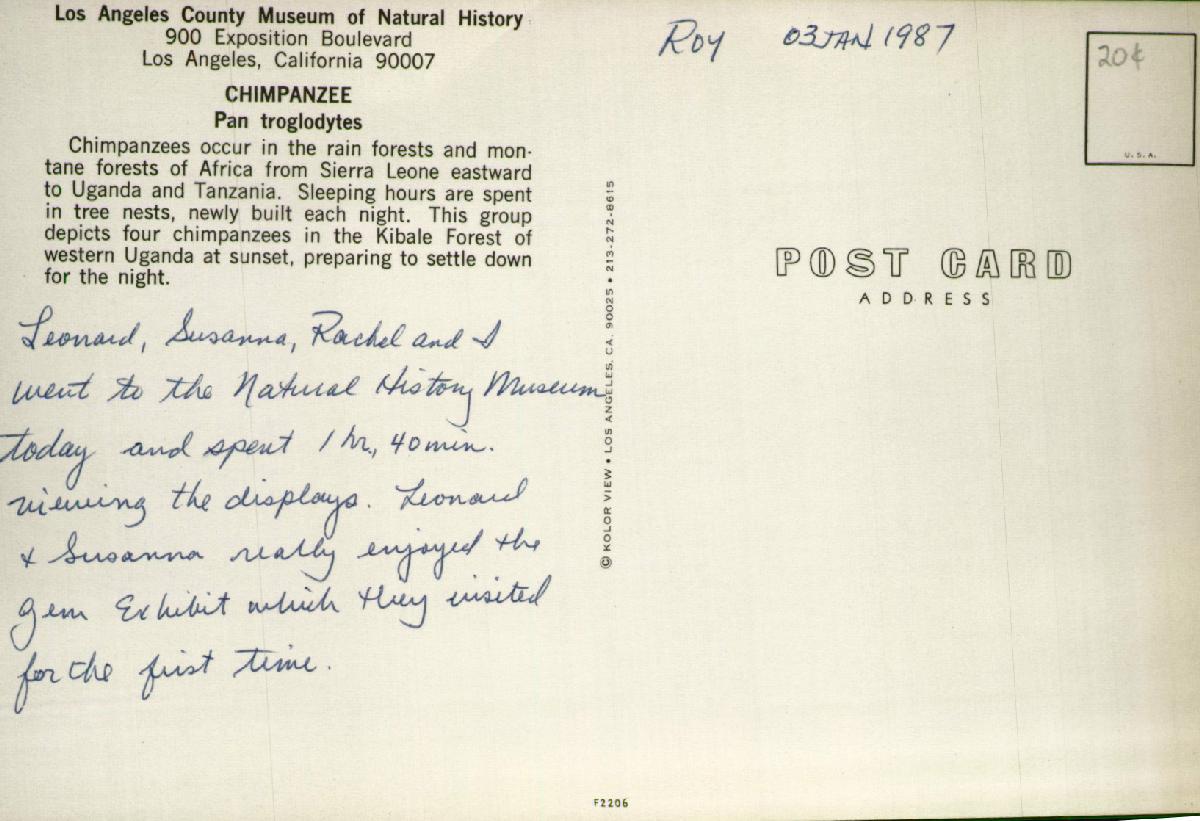 Los Angeles County Museum of Natural History
900 Exposition Boulevard
Los Angeles, California 90007
CHIMPANZEE
Pan troglodytes
Chimpanzees occur in the rain forests and mon-
tane forests of Africa from Sierra Leone eastward
to Uganda and Tanzania. Sleeping hours are spent
in tree nests, newly built each night. This group
depicts four chimpanzees in the Kibale Forest of
western Uganda at sunset, preparing to settle down
for the night.
Leonard, Susanna, Rachel and I
went to the Natural History Museum
today and spent 1 hr., 40 min.
viewing the displays. Leonard
& Susanna really enjoyed the
gem Exhibit which they visited
for the first time.
© KOLOR VIEW • LOS ANGELES, CA. 90025 • 213-272-8615
F2206
Roy 03JAN1987
20¢
U.S.A.
POST CARD
ADDRESS